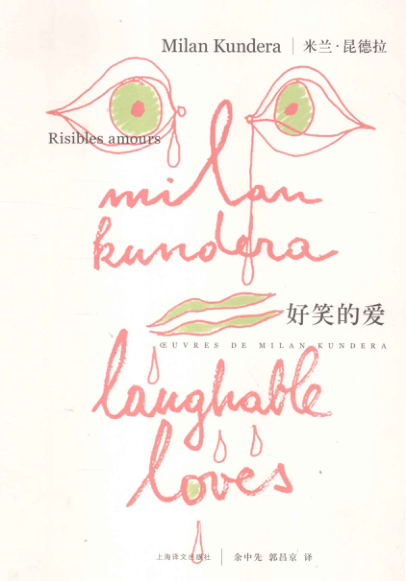 Milan Kundera | 米兰·昆德拉
Risibles amours
milan
kundera
好笑的爱
ŒUVRES DE MILAN KUNDERA
laughable
loves
上海译文出版社 | 余中先 郭昌京 译